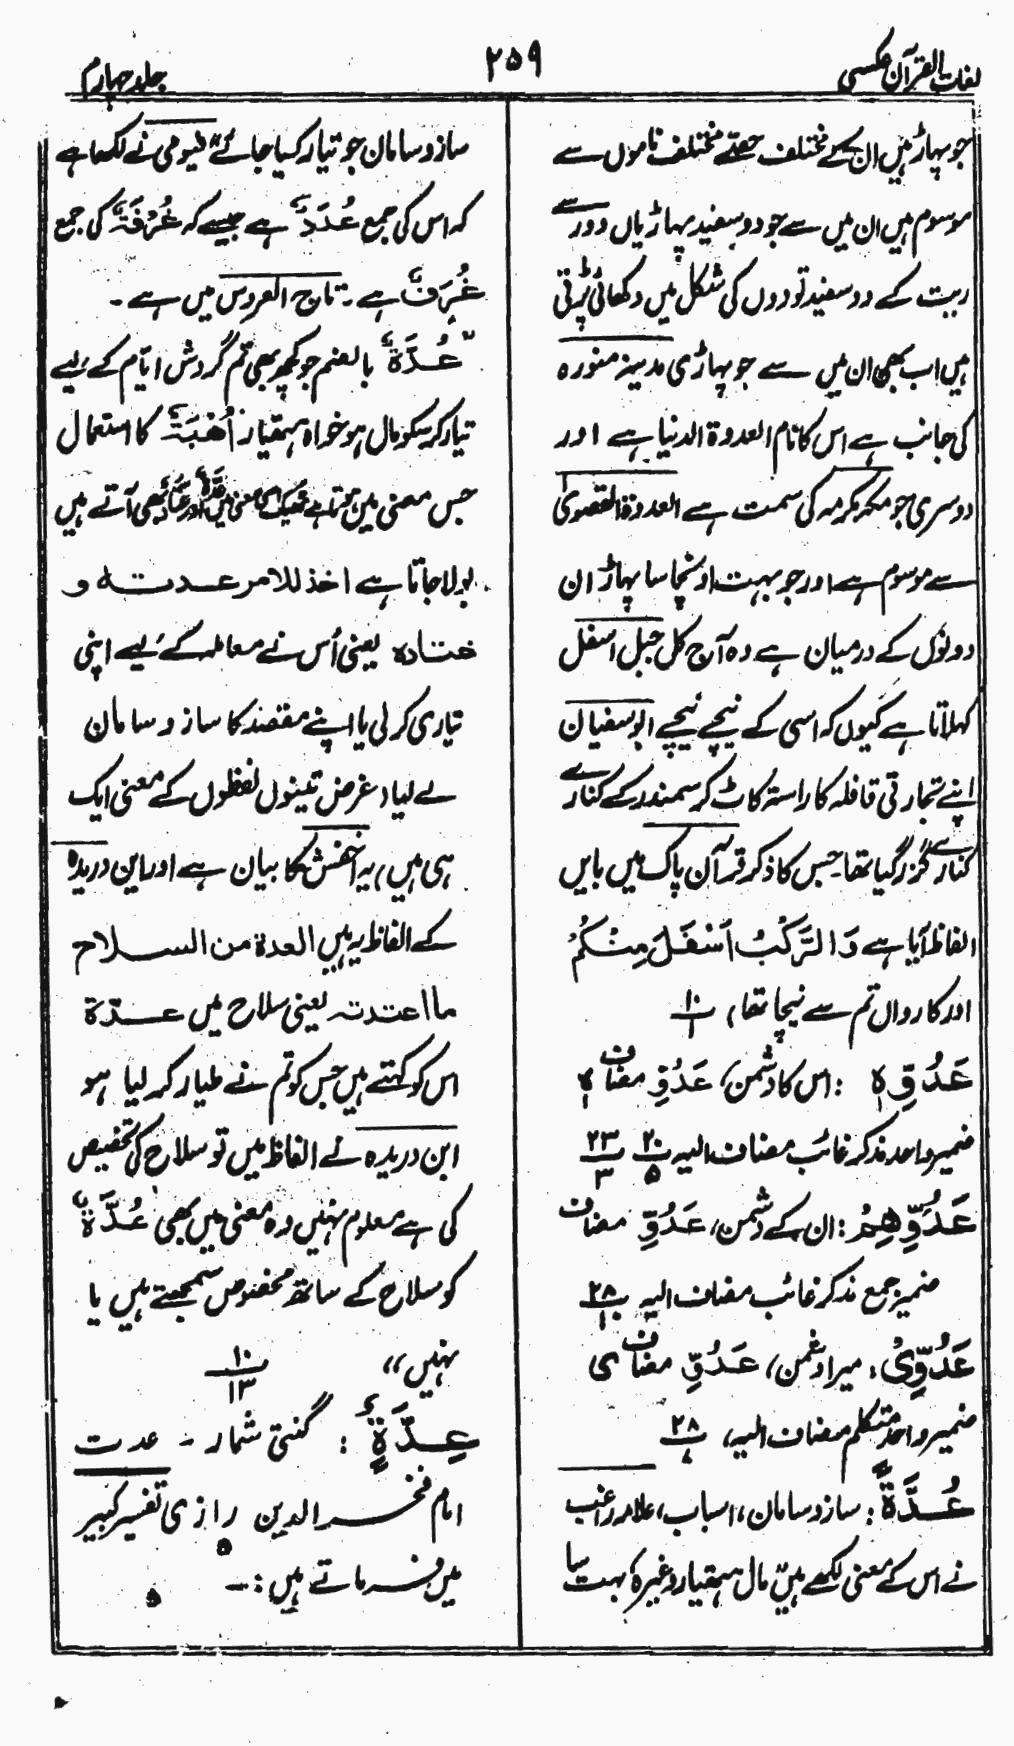 لغات القرآن عکسی
۲۵۹
جلد چہارم
جو پہاڑ ہیں ان کے مختلف حصّے مختلف ناموں سے
موسوم ہیں ان میں سے جو دو سفید پہاڑیاں دور سے
ریت کے دو سفید تودوں کی شکل میں دکھائی پڑتی
ہیں اب بھی ان میں سے جو پہاڑی مدینہ منورہ
کی جانب ہے اس کا نام العدوۃ الدنیا ہے اور
دوسری جو مکہ مکرمہ کی سمت ہے العدوۃ القصویٰ
سے موسوم ہے اور جو بہت اونچا سا پہاڑ ان
دونوں کے درمیان ہے وہ آج کل جبل اسفل
کہلاتا ہے کیوں کہ اسی کے نیچے نیچے ابوسفیان
اپنے تجارتی قافلہ کا راستہ کاٹ کر سمندر کے کنارے
کنارے گزر گیا تھا۔ جس کا ذکر قرآن پاک میں بایں
الفاظ آیا ہے وَالرَّكْبُ اَسْفَلَ مِنْكُمْ
اور کارواں تم سے نیچا تھا، ۱۰/۱
عَدُوِّہٖ : اس کا دشمن، عَدُوِّ مضاف ہٖ
ضمیر واحد مذکر غائب مضاف الیہ ۲۰/۵ ۲۳/۳
عَدُوِّهِمْ : ان کے دشمن، عَدُوِّ مضاف
ضمیر جمع مذکر غائب مضاف الیہ ۲۸/۱۰
عَدُوِّیْ : میرا دشمن، عَدُوِّ مضاف ی
ضمیر واحد متکلم مضاف الیہ، ۲۸/۷
عُدَّةً : ساز و سامان، اسباب، علامہ راغب
نے اس کے معنی لکھے ہیں مال ہتھیار وغیرہ بہت سا
ساز و سامان جو تیار کیا جائے" فیومی نے لکھا ہے
کہ اس کی جمع عُدَدٌ ہے جیسے کہ غُرْفَةٌ کی جمع
غُرَفٌ ہے۔ تاج العروس میں ہے۔
"عُدَّةٌ بالضم جو کچھ بھی تم گردش ایّام کے لیے
تیار کر سکو مال ہو خواہ ہتھیار اُهْبَةٌ کا استعمال
جس معنی میں ہوتا ہے ٹھیک اسی معنی میں عُدَّةٌ اور عَتَادٌ بھی آتے ہیں
بولا جاتا ہے اخذ للامر عدتہ و
عتادہ یعنی اُس نے معاملہ کے لیے اپنی
تیاری کر لی یا اپنے مقصد کا ساز و سامان
لے لیا، غرض تینوں لفظوں کے معنی ایک
ہی ہیں، یہ اخفش کا بیان ہے اور ابن دریدہ
کے الفاظ یہ ہیں العدة من السلاح
ما اعتدتہ یعنی سلاح میں عدّة
اس کو کہتے ہیں جس کو تم نے طیار کر لیا ہو
ابن دریدہ کے الفاظ میں تو سلاح کی تخصیص
کی ہے معلوم نہیں وہ معنی میں بھی عُدَّةٌ
کو سلاح کے ساتھ مخصوص سمجھتے ہیں یا
نہیں،، ۱۰/۱۳
عِدَّةٌ : گنتی شمار ۔ عدت
امام فخر الدین رازی تفسیر کبیر
میں فرماتے ہیں:۔